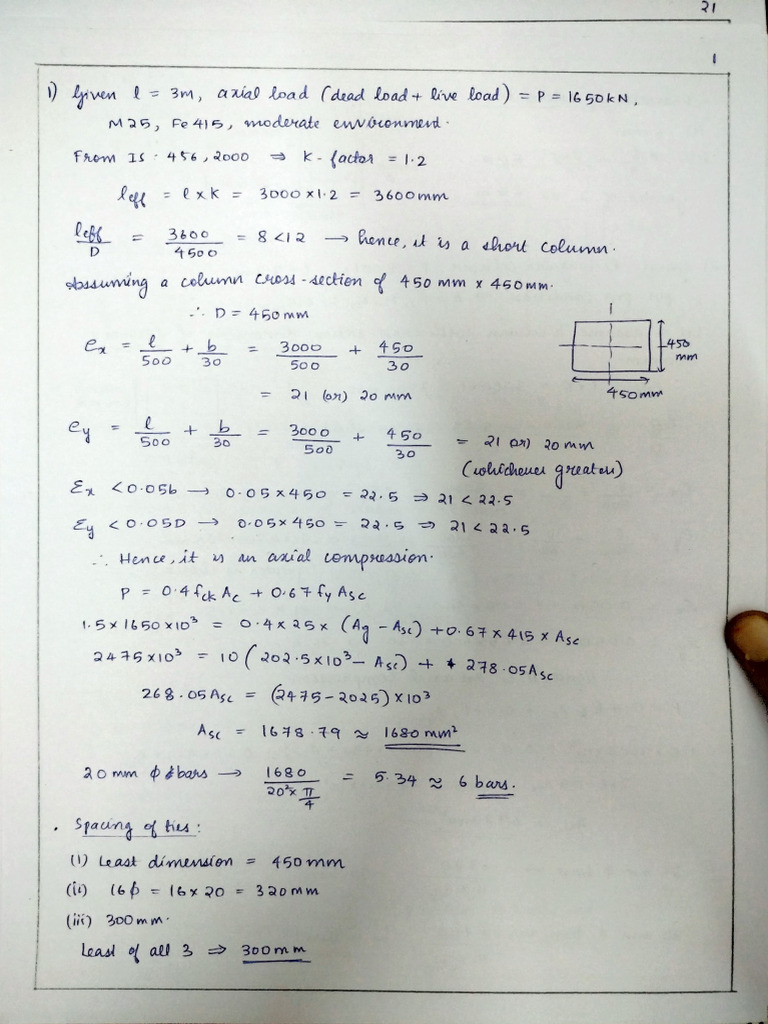 21
1
1) Given l = 3m, axial load (dead load + live load) = P = 1650kN,
M25, Fe415, moderate environment.
From IS : 456, 2000 ⇒ K-factor = 1.2
leff = l x K = 3000 x 1.2 = 3600mm
leff/D = 3600/4500 = 8 < 12 → hence, it is a short column.
Assuming a column cross-section of 450 mm x 450mm.
∴ D = 450mm
ex = l/500 + b/30 = 3000/500 + 450/30
450 mm
= 21 (or) 20 mm
450mm
ey = l/500 + b/30 = 3000/500 + 450/30 = 21 or) 20 mm
(whichever greater)
Ex < 0.05b → 0.05 x 450 = 22.5 ⇒ 21 < 22.5
Ey < 0.05D → 0.05 x 450 = 22.5 ⇒ 21 < 22.5
∴ Hence, it is an axial compression.
P = 0.4 fck Ac + 0.67 fy Asc
1.5 x 1650 x 10³ = 0.4 x 25 x (Ag - Asc) + 0.67 x 415 x Asc
2475 x 10³ = 10 (202.5 x 10³ - Asc) + 278.05 Asc
268.05 Asc = (2475 - 2025) x 10³
Asc = 1678.79 ≈ 1680 mm²
20 mm ϕ bars → 1680/(20² x π/4) = 5.34 ≈ 6 bars.
. Spacing of ties :
(i) Least dimension = 450 mm
(ii) 16ϕ = 16 x 20 = 320mm
(iii) 300mm.
Least of all 3 ⇒ 300mm